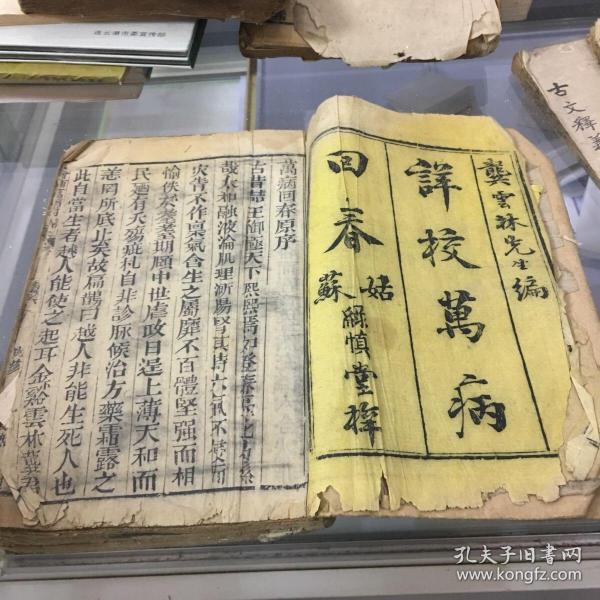 連雲港市委宣传部
古文釋義
龔雲林先生編
詳校萬病
回春
姑蘇
綠慎堂梓
萬病回春原序
古昔喆王御極天下熙熙焉如登春臺之
哉太和融液淪肌理漸腸腎其時六氣不侵
灾眚不作臭氣含生之屬靡不百體堅强而相
愉佚於耄耋期頤中世虐政日逞上薄天和而
民廼有夭殤疵札自非診脉候治方藥霜露之
恙罔所底止矣故扁鵲曰越人非能生死人也
此自當生者越人能使之起耳金谿雲林龔君
孔夫子旧书网
www.kongfz.com